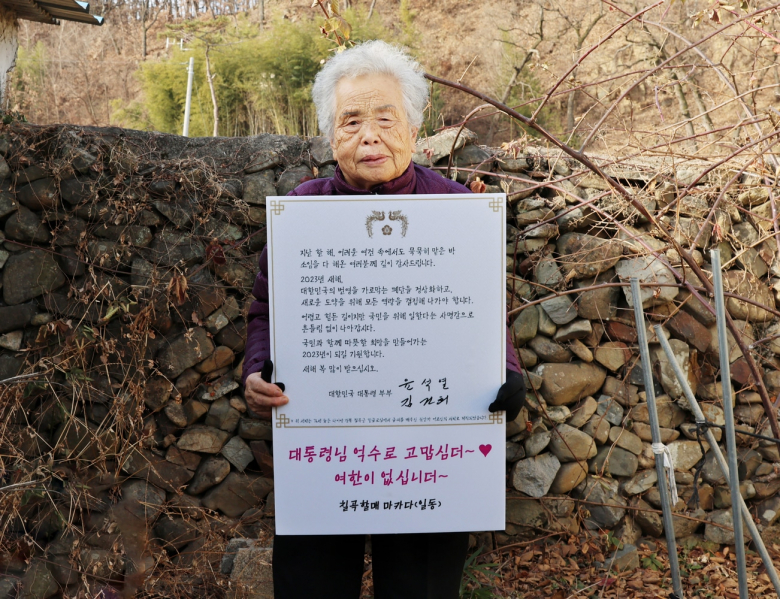 지난 한 해, 어려운 여건 속에서도 묵묵히 맡은 바
소임을 다 해온 여러분께 깊이 감사드립니다.
2023년 새해,
대한민국의 번영을 가로막는 폐단을 정상화하고,
새로운 도약을 위해 모든 역량을 결집해 나가야 합니다.
어렵고 힘든 길이지만 국민을 위해 일한다는 사명감으로
흔들림 없이 나아갑시다.
국민과 함께 따뜻한 희망을 만들어가는
2023년이 되길 기원합니다.
새해 복 많이 받으십시오.
대한민국 대통령 부부 윤석열
김건희
대통령님 억수로 고맙심더~♥
여한이 없심니더~
칠곡할매 마카다(일동)